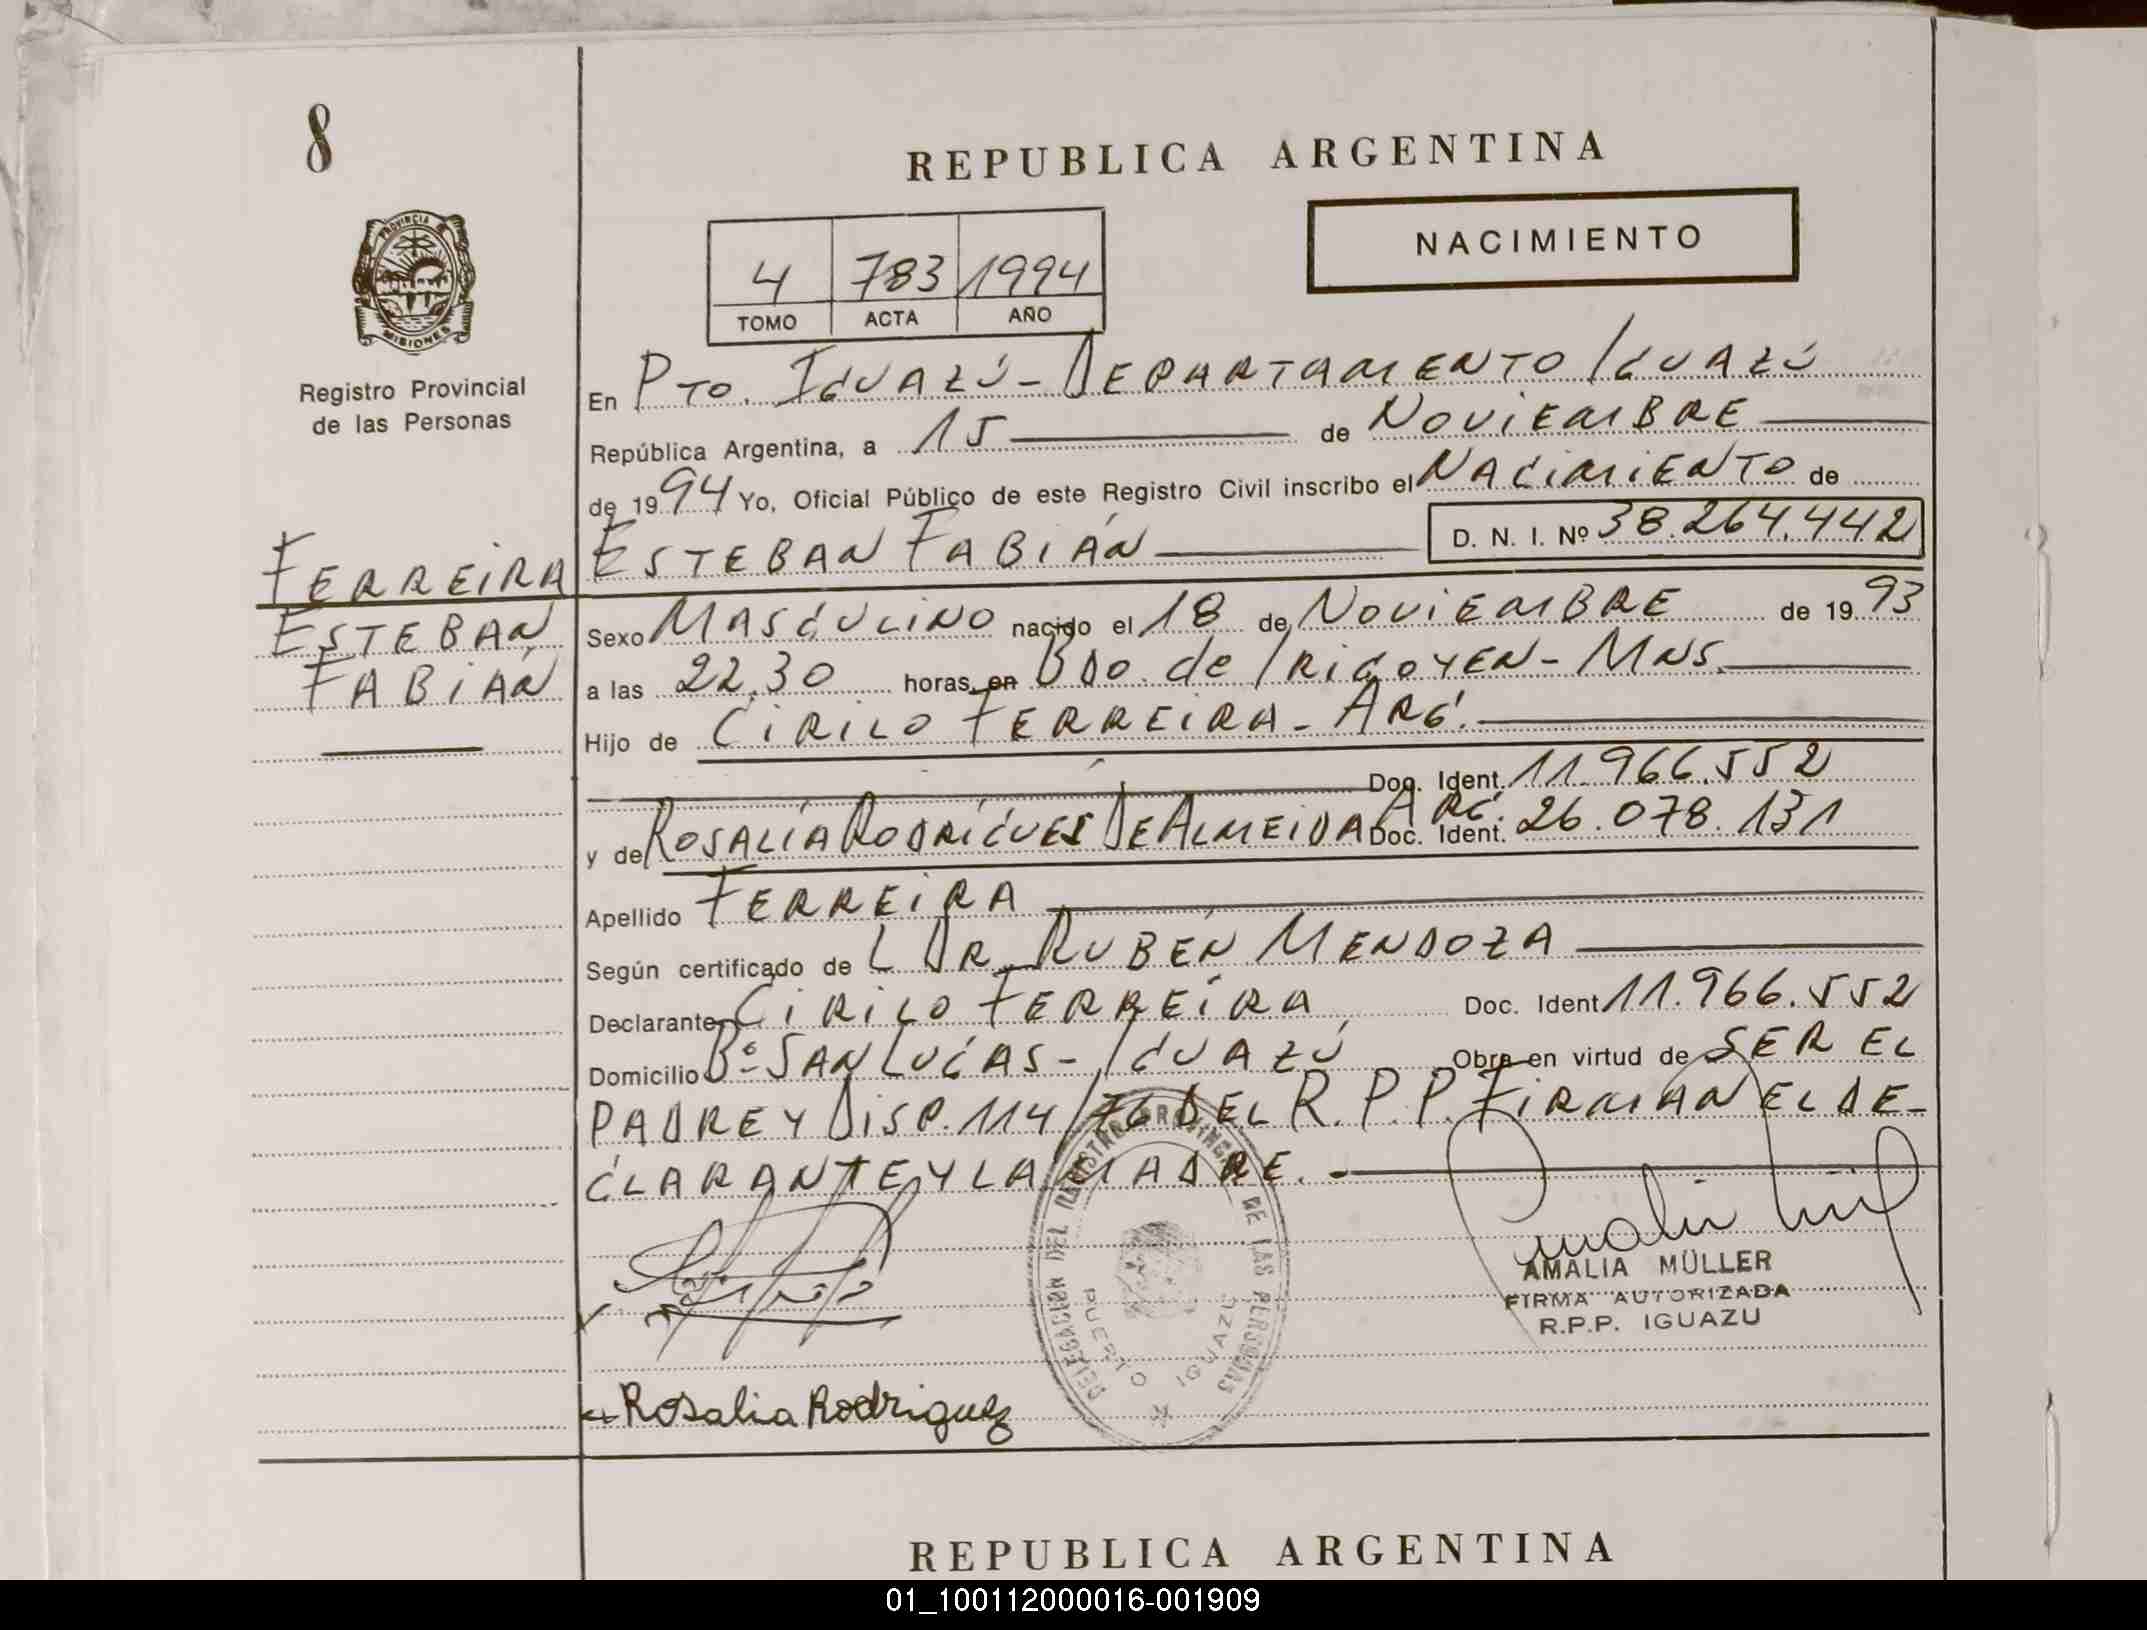 8
REPUBLICA ARGENTINA
NACIMIENTO
4 783 1994
TOMO ACTA AÑO
PROVINCIA
MISIONES
Registro Provincial
de las Personas
En PTO. IGUAZÚ - DEPARTAMENTO IGUAZÚ
República Argentina, a 15 de NOVIEMBRE
de 1994 Yo, Oficial Público de este Registro Civil inscribo el NACIMIENTO de
ESTEBAN FABIÁN D. N. I. Nº 38.264.442
FERREIRA
ESTEBAN
FABIÁN
Sexo MASCULINO nacido el 18 de NOVIEMBRE de 1993
a las 22.30 horas, en BDO. de IRIGOYEN - MNS.
Hijo de CIRILO FERREIRA - ARG.
Doc. Ident. 11.966.552
y de ROSALÍA RODRÍGUES DE ALMEIDA ARG. Doc. Ident. 26.078.131
Apellido FERREIRA
Según certificado de L DR. RUBÉN MENDOZA
Declarante CIRILO FERREIRA, Doc. Ident 11.966.552
Domicilio Bº SAN LUCAS - IGUAZÚ Obra en virtud de SER EL
PADRE Y DISP. 114/76 DEL R.P.P. FIRMAN EL DE-
CLARANTE Y LA MADRE. -
DELEGACION DEL REGISTRO PROVINCIAL DE LAS PERSONAS
PUERTO IGUAZU
AMALIA MÜLLER
FIRMA AUTORIZADA
R.P.P. IGUAZU
Rosalia Rodriguez
REPUBLICA ARGENTINA
01_100112000016-001909